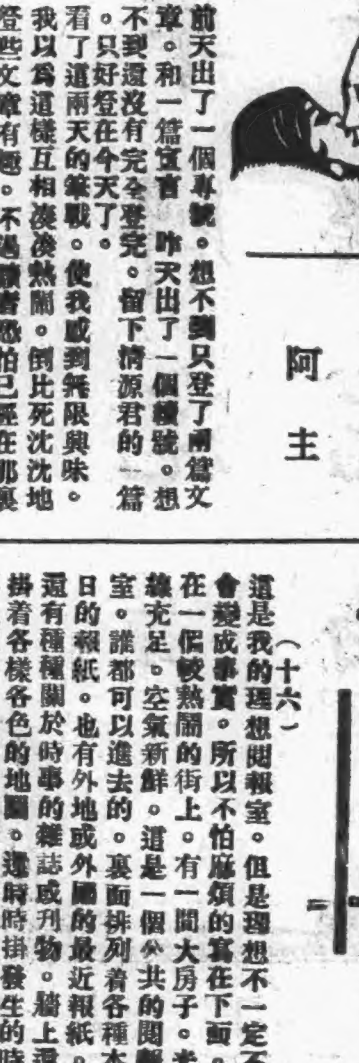 阿主
前天出了一個專號。想不到只登了兩篇文
章。和一篇宣言 昨天出了一個續號。想
不到還沒有完全登完。留下清源君的一篇
。只好登在今天了。
看了這兩天的筆戰。使我感到無限興味。
我以爲這樣互相湊湊熱鬧。倒比死沈沈地
登些文章有趣。不過讀者恐怕已經在那裏
(十六)
這是我的理想閱報室。但是理想不一定不
會變成事實。所以不怕麻煩的寫在下面。
在一個較熱鬧的街上。有一間大房子。光
線充足。空氣新鮮。這是一個公共的閱報
室。誰都可以進去的。裏面排列着各種本
日的報紙。也有外地或外國的最近報紙。
還有種種關於時事的雜誌或刊物。牆上還
掛着各樣各色的地圖。還時時掛發生的時